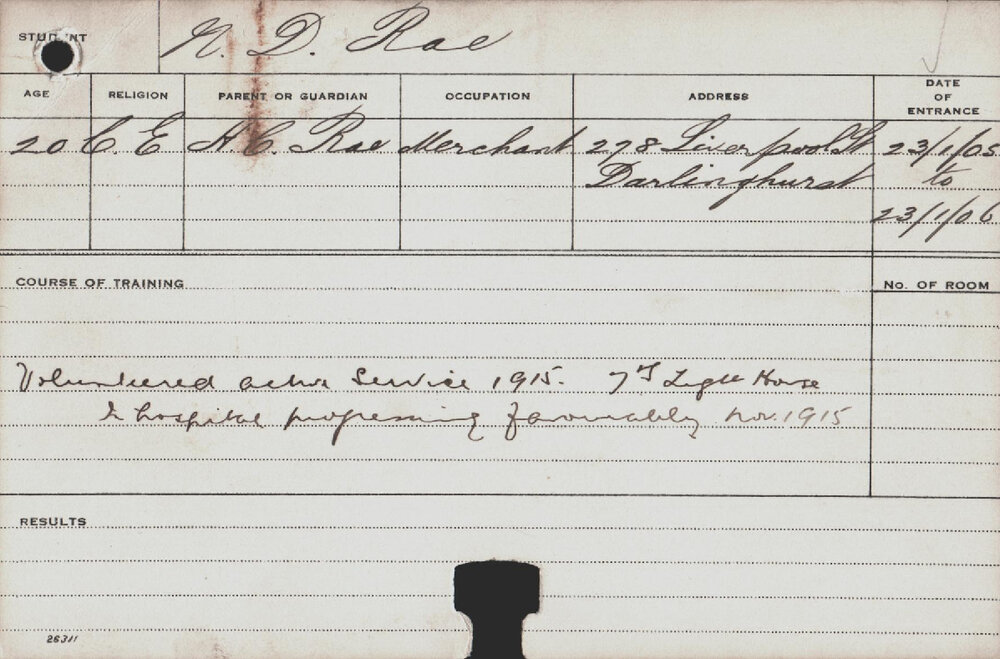 STUDENT N. D. Rae
AGE RELIGION PARENT OR GUARDIAN OCCUPATION ADDRESS DATE OF ENTRANCE
20 C. E H. C. Rae Merchant 278 Liverpool St 23/1/05
Darlinghurst to
23/1/06
COURSE OF TRAINING No. OF ROOM
Volunteered active Service 1915. 7th Light Horse
In hospital progressing favourably Nov. 1915
RESULTS
26311